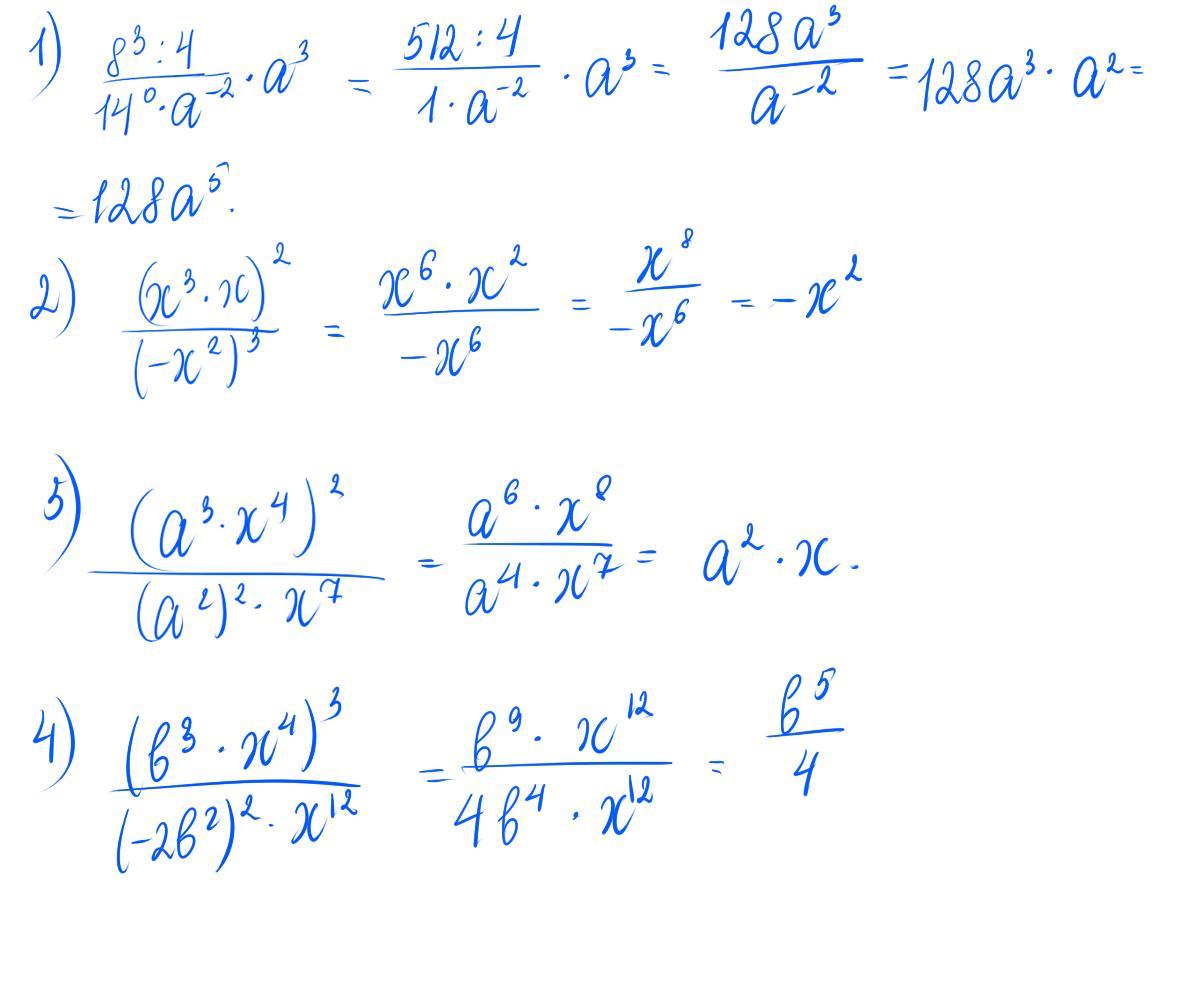 1) \frac{8^3 : 4}{14^0 \cdot a^{-2}} \cdot a^3 = \frac{512 : 4}{1 \cdot a^{-2}} \cdot a^3 = \frac{128a^3}{a^{-2}} = 128a^3 \cdot a^2 =
= 128a^5.
2) \frac{(x^3 \cdot x)^2}{(-x^2)^3} = \frac{x^6 \cdot x^2}{-x^6} = \frac{x^8}{-x^6} = -x^2
3) \frac{(a^3 \cdot x^4)^2}{(a^2)^2 \cdot x^7} = \frac{a^6 \cdot x^8}{a^4 \cdot x^7} = a^2 \cdot x.
4) \frac{(b^3 \cdot x^4)^3}{(-2b^2)^2 \cdot x^{12}} = \frac{b^9 \cdot x^{12}}{4b^4 \cdot x^{12}} = \frac{b^5}{4}